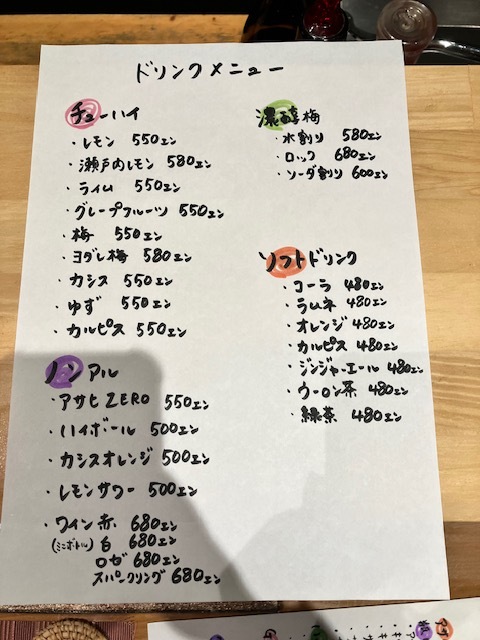 ドリンクメニュー
チューハイ
・レモン 550エン
・瀬戸内レモン 580エン
・ライム 550エン
・グレープフルーツ 550エン
・梅 550エン
・ヨダレ梅 580エン
・カシス 550エン
・ゆず 550エン
・カルピス 550エン
ノンアル
・アサヒZERO 550エン
・ハイボール 500エン
・カシスオレンジ 500エン
・レモンサワー 500エン
・ワイン 赤 680エン
(ミニボトル) 白 680エン
ロゼ 680エン
スパークリング 680エン
濃醇梅
・水割り 580エン
・ロック 680エン
・ソーダ割り 600エン
ソフトドリンク
・コーラ 480エン
・ラムネ 480エン
・オレンジ 480エン
・カルピス 480エン
・ジンジャーエール 480エン
・ウーロン茶 480エン
・緑茶 480エン